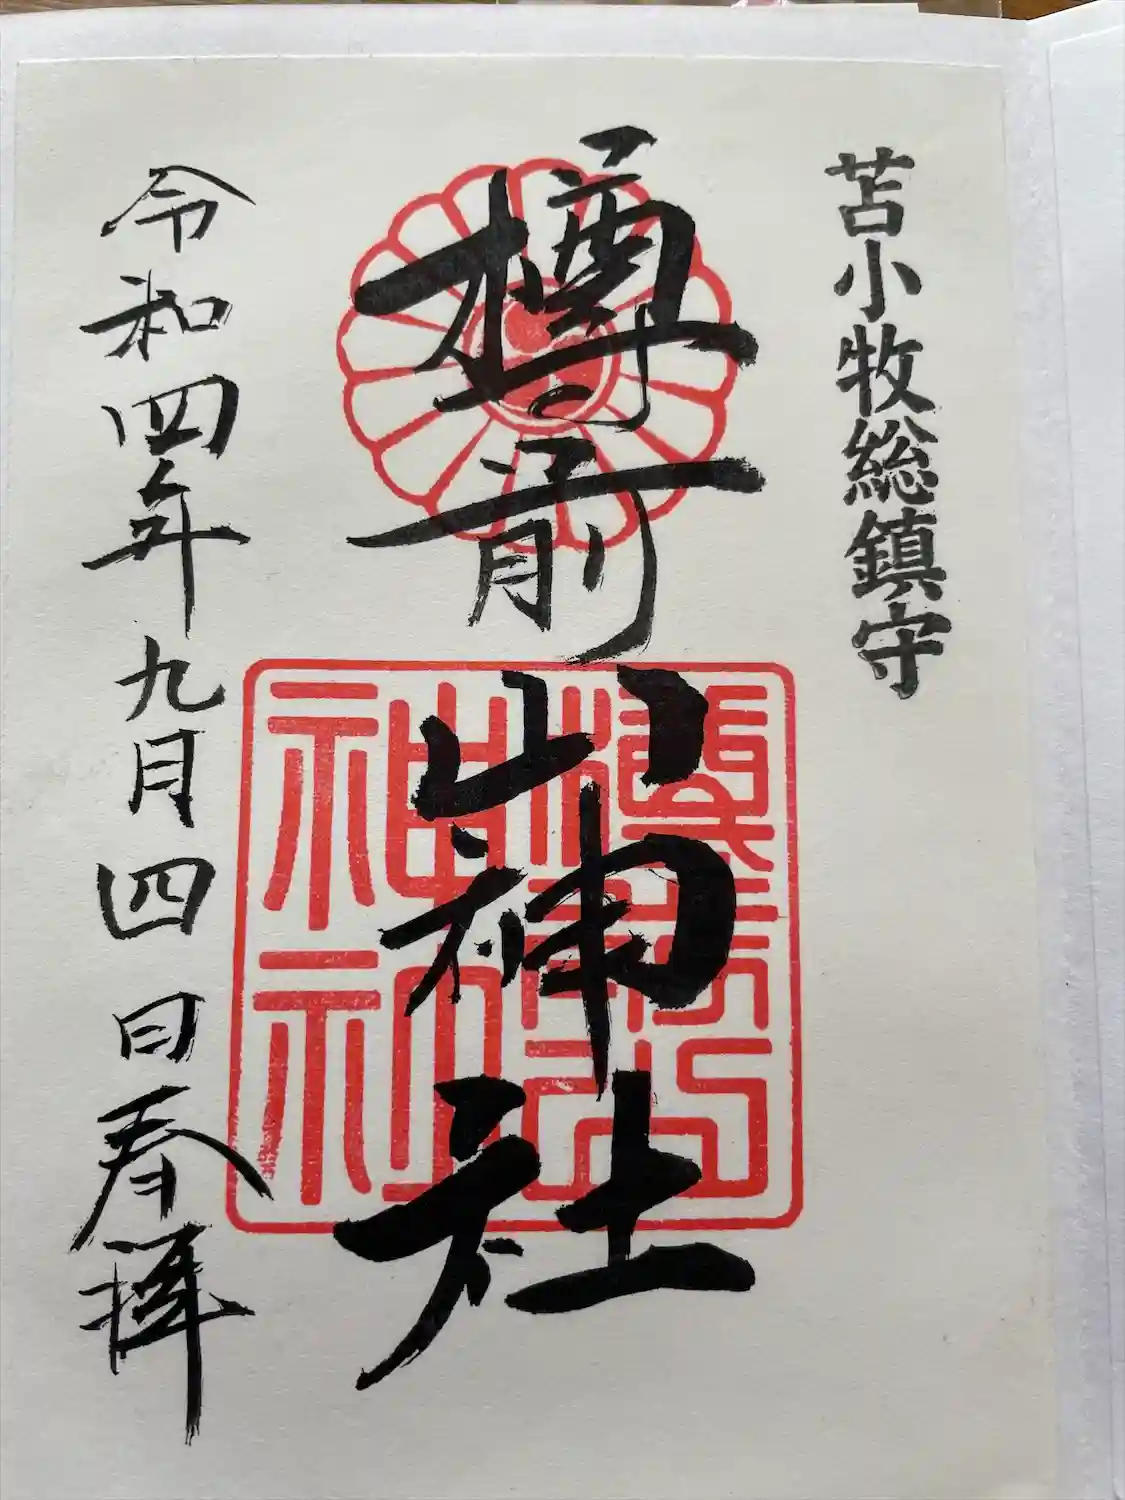 苫小牧総鎮守
樽前山神社
樽前山神社
令和四年九月四日奉拝